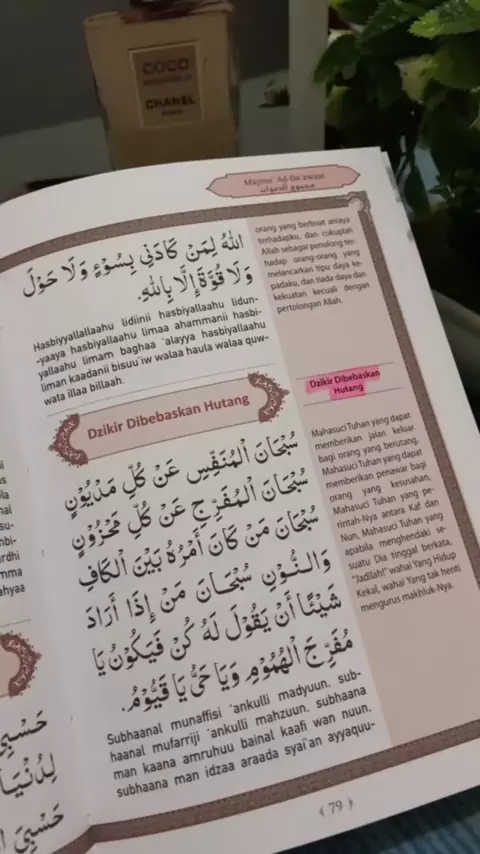 COCO
CHANEL
Majmu' Ad-Da'awaat
مجموع الدعوات
اللهُ لِمَنْ كَادَنِي بِسُوْءٍ وَلَا حَوْلَ
وَلَا قُوَّةَ إِلَّا بِاللهِ.
Hasbiyyallallaahu lidiinii hasbiyallaahu lidun-
-yaaya hasbiyallaahu limaa ahammanii hasbi-
yallaahu limam baghaa 'alayya hasbiyallaahu
liman kaadanii bisuu'iw walaa haula walaa quw-
wata illaa billaah.
orang yang berbuat aniaya
terhadapku, dan cukuplah
Allah sebagai penolong ter-
hadap orang-orang yang
melancarkan tipu daya ke-
padaku, dan tiada daya dan
kekuatan kecuali dengan
pertolongan Allah.
Dzikir Dibebaskan Hutang
سُبْحَانَ الْمُنَفِّسِ عَنْ كُلِّ مَدْيُوْنٍ
سُبْحَانَ الْمُفَرِّجِ عَنْ كُلِّ مَحْزُوْنٍ
سُبْحَانَ مَنْ كَانَ أَمْرُهُ بَيْنَ الْكَافِ
وَالنُّوْنِ سُبْحَانَ مَنْ إِذَا أَرَادَ
شَيْئًا أَنْ يَقُوْلَ لَهُ كُنْ فَيَكُوْنُ يَا
مُفَرِّجَ الْهُمُوْمِ وَيَا حَيُّ يَا قَيُّوْمُ.
Subhaanal munaffisi 'ankulli madyuun. sub-
haanal mufarriji 'ankulli mahzuun. subhaana
man kaana amruhuu bainal kaafi wan nuun.
subhaana man idzaa araada syai'an ayyaquu-
Dzikir Dibebaskan
Hutang
Mahasuci Tuhan yang dapat
memberikan jalan keluar
bagi orang yang berutang,
Mahasuci Tuhan yang dapat
memberikan penawar bagi
orang yang kesusahan,
Mahasuci Tuhan yang pe-
rintah-Nya antara Kaf dan
Nun, Mahasuci Tuhan yang
apabila menghendaki se-
suatu Dia tinggal berkata,
"Jadilah!" wahai Yang Hidup
Kekal, wahai Yang tak henti
mengurus makhluk-Nya.
79
حَسْبِيَ
لِدُنْيَا
حَسْبِيَ